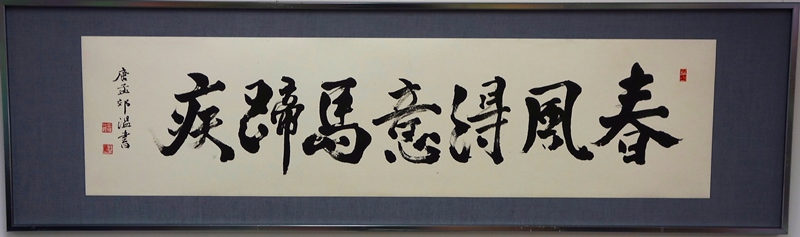 春風得意馬蹄疾
唐孟郊 溫書